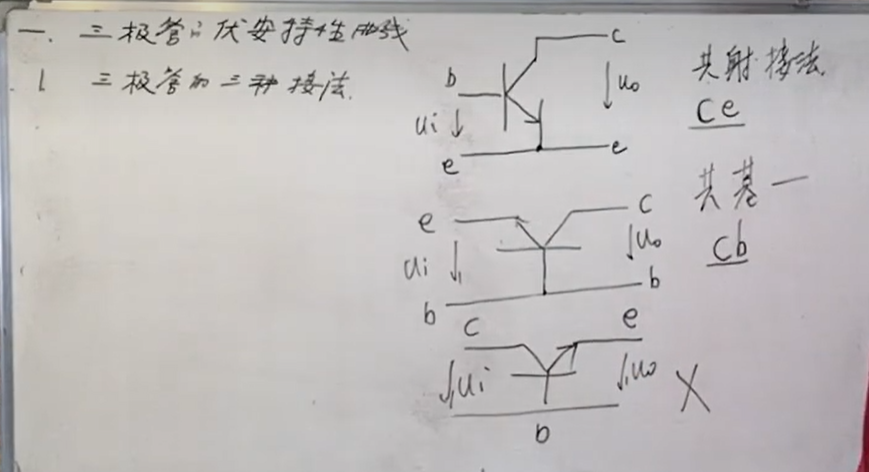 一. 三极管的伏安特性曲线
1 三极管的三种接法.
c
b
ui
uo
e
e
共射接法.
ce
e
c
ui
uo
b
b
共基一
cb
c
e
ui
uo
b
X